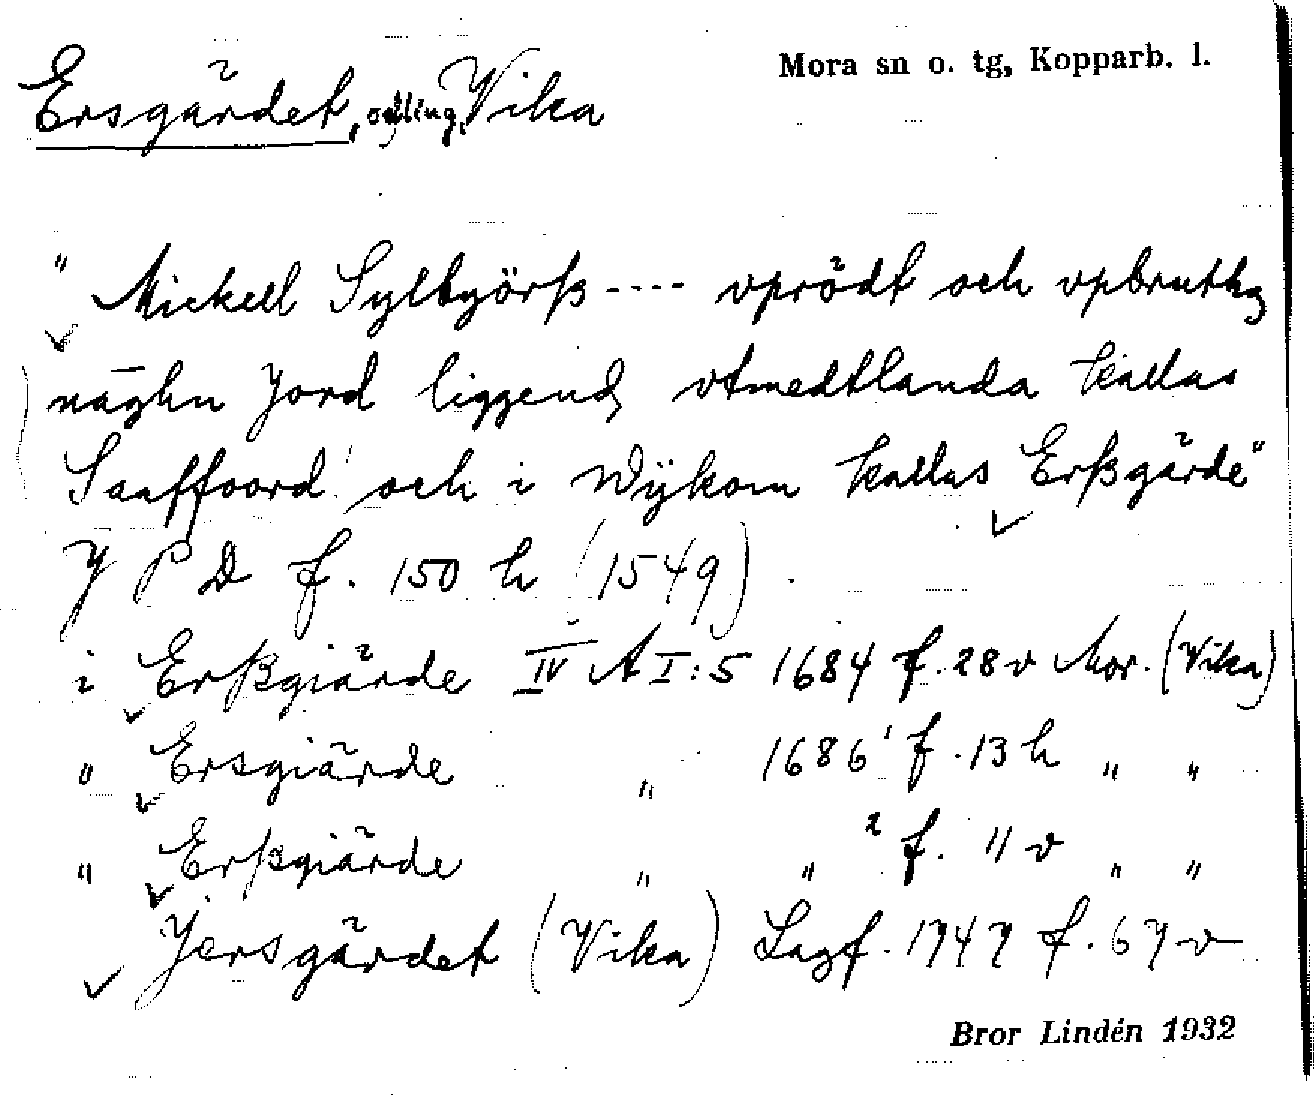 Mora sn o. tg, Kopparb. l.
Ersgärdet, odling, Vika
" Mickell Sylbyörß ---- vprödt och vpbruthz
nāghn Jord liggend, vtmedtlanda kallas
Saaffoord och i Wÿkom kallas Erßgärde"
J P D f. 150 h (1549).
i Erßgiärde IV A I:5 1684 f. 28 v Mor. (Vika)
" Ersgiärde " 1686¹ f. 13 h " "
" Erßgiärde " " ² f. 11 v " "
Jersgärdet (Vika) Lagf. 1747 f. 67 v
Bror Lindén 1932